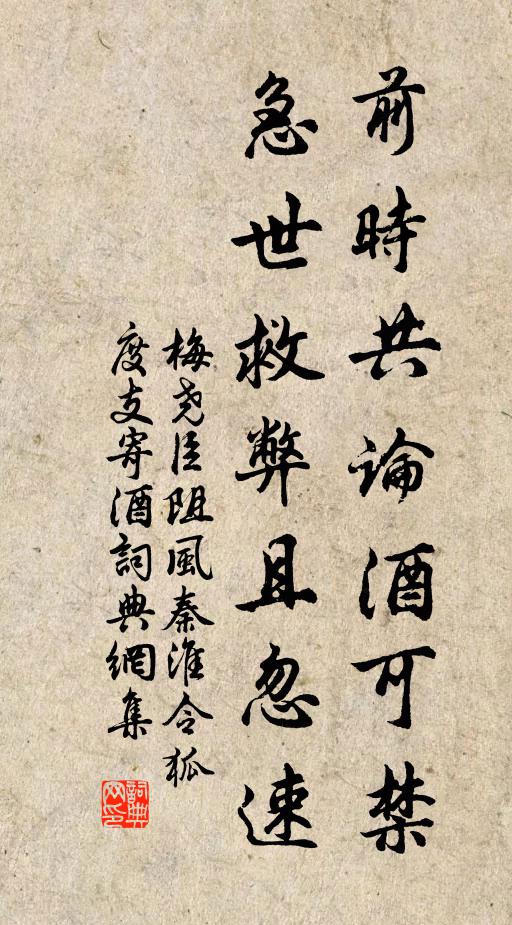 前時共論酒可禁
急世救弊且忽速
梅尧臣阻風秦淮令狐
度支寄酒詞典網集
詞典
网印